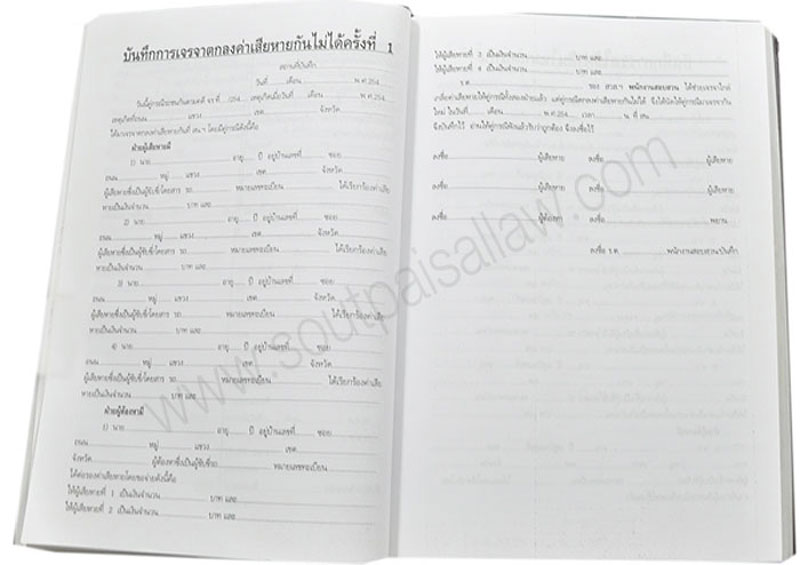 บันทึกการเจรจาตกลงค่าเสียหายกันไม่ได้ครั้งที่ 1
สถานที่บันทึก
วันที่......เดือน....................พ.ศ.254....
วันนี้คู่กรณีรถชนกันตามคดี จร.ที่ ..../254.... เหตุเกิดเมื่อวันที่ ......เดือน....................พ.ศ.254....
เหตุเกิดที่ถนน....................แขวง....................เขต....................จังหวัด....................
ได้มาเจรจาตกลงค่าเสียหายกันที่ สน.ฯ โดยมีคู่กรณีดังนี้คือ
ฝ่ายผู้เสียหายมี
1) นาย....................อายุ......ปี อยู่บ้านเลขที่......ซอย..........
ถนน....................หมู่......แขวง....................เขต....................จังหวัด....................
ผู้เสียหายซึ่งเป็นผู้ขับขี่/โดยสาร รถ....................หมายเลขทะเบียน....................ได้เรียกร้องค่าเสีย
หายเป็นเงินจำนวน....................บาท และ....................
2) นาย....................อายุ......ปี อยู่บ้านเลขที่......ซอย..........
ถนน....................หมู่......แขวง....................เขต....................จังหวัด....................
ผู้เสียหายซึ่งเป็นผู้ขับขี่/โดยสาร รถ....................หมายเลขทะเบียน....................ได้เรียกร้องค่าเสีย
หายเป็นเงินจำนวน....................บาท และ....................
3) นาย....................อายุ......ปี อยู่บ้านเลขที่......ซอย..........
ถนน....................หมู่......แขวง....................เขต....................จังหวัด....................
ผู้เสียหายซึ่งเป็นผู้ขับขี่/โดยสาร รถ....................หมายเลขทะเบียน....................ได้เรียกร้องค่าเสีย
หายเป็นเงินจำนวน....................บาท และ....................
4) นาย....................อายุ......ปี อยู่บ้านเลขที่......ซอย..........
ถนน....................หมู่......แขวง....................เขต....................จังหวัด....................
ผู้เสียหายซึ่งเป็นผู้ขับขี่/โดยสาร รถ....................หมายเลขทะเบียน....................ได้เรียกร้องค่าเสีย
หายเป็นเงินจำนวน....................บาท และ....................
ฝ่ายผู้ต้องหามี
1) นาย....................อายุ......ปี อยู่บ้านเลขที่......ซอย..........
ถนน....................หมู่......แขวง....................เขต....................
จังหวัด....................ผู้ต้องหาซึ่งเป็นผู้ขับขี่รถ....................หมายเลขทะเบียน....................
ได้ต่อรองค่าเสียหายโดยขอจ่ายดังนี้คือ
ให้ผู้เสียหายที่ 1 เป็นเงินจำนวน....................บาท และ....................
ให้ผู้เสียหายที่ 2 เป็นเงินจำนวน....................บาท และ....................
ให้ผู้เสียหายที่ 3 เป็นเงินจำนวน....................บาท และ....................
ให้ผู้เสียหายที่ 4 เป็นเงินจำนวน....................บาท และ....................
ร.ต.....................รอง สวส.ฯ พนักงานสอบสวน ได้ช่วยเจรจาไกล่
เกลี่ยค่าเสียหายให้คู่กรณีทั้งสองฝ่ายแล้ว แต่คู่กรณีตกลงค่าเสียหายกันไม่ได้ จึงได้นัดให้คู่กรณีมาเจรจากัน
ใหม่ ในวันที่......เดือน....................พ.ศ.254....เวลา..........น. ที่ สน.
จึงบันทึกไว้ อ่านให้คู่กรณีฟังแล้วรับว่าถูกต้อง จึงลงชื่อไว้
ลงชื่อ....................ผู้เสียหาย ลงชื่อ....................ผู้เสียหาย
ลงชื่อ....................ผู้เสียหาย ลงชื่อ....................ผู้เสียหาย
ลงชื่อ....................ผู้ต้องหา ลงชื่อ....................พยาน
ลงชื่อ ร.ต.....................พนักงานสอบสวน/บันทึก
www.soutpaisallaw.com